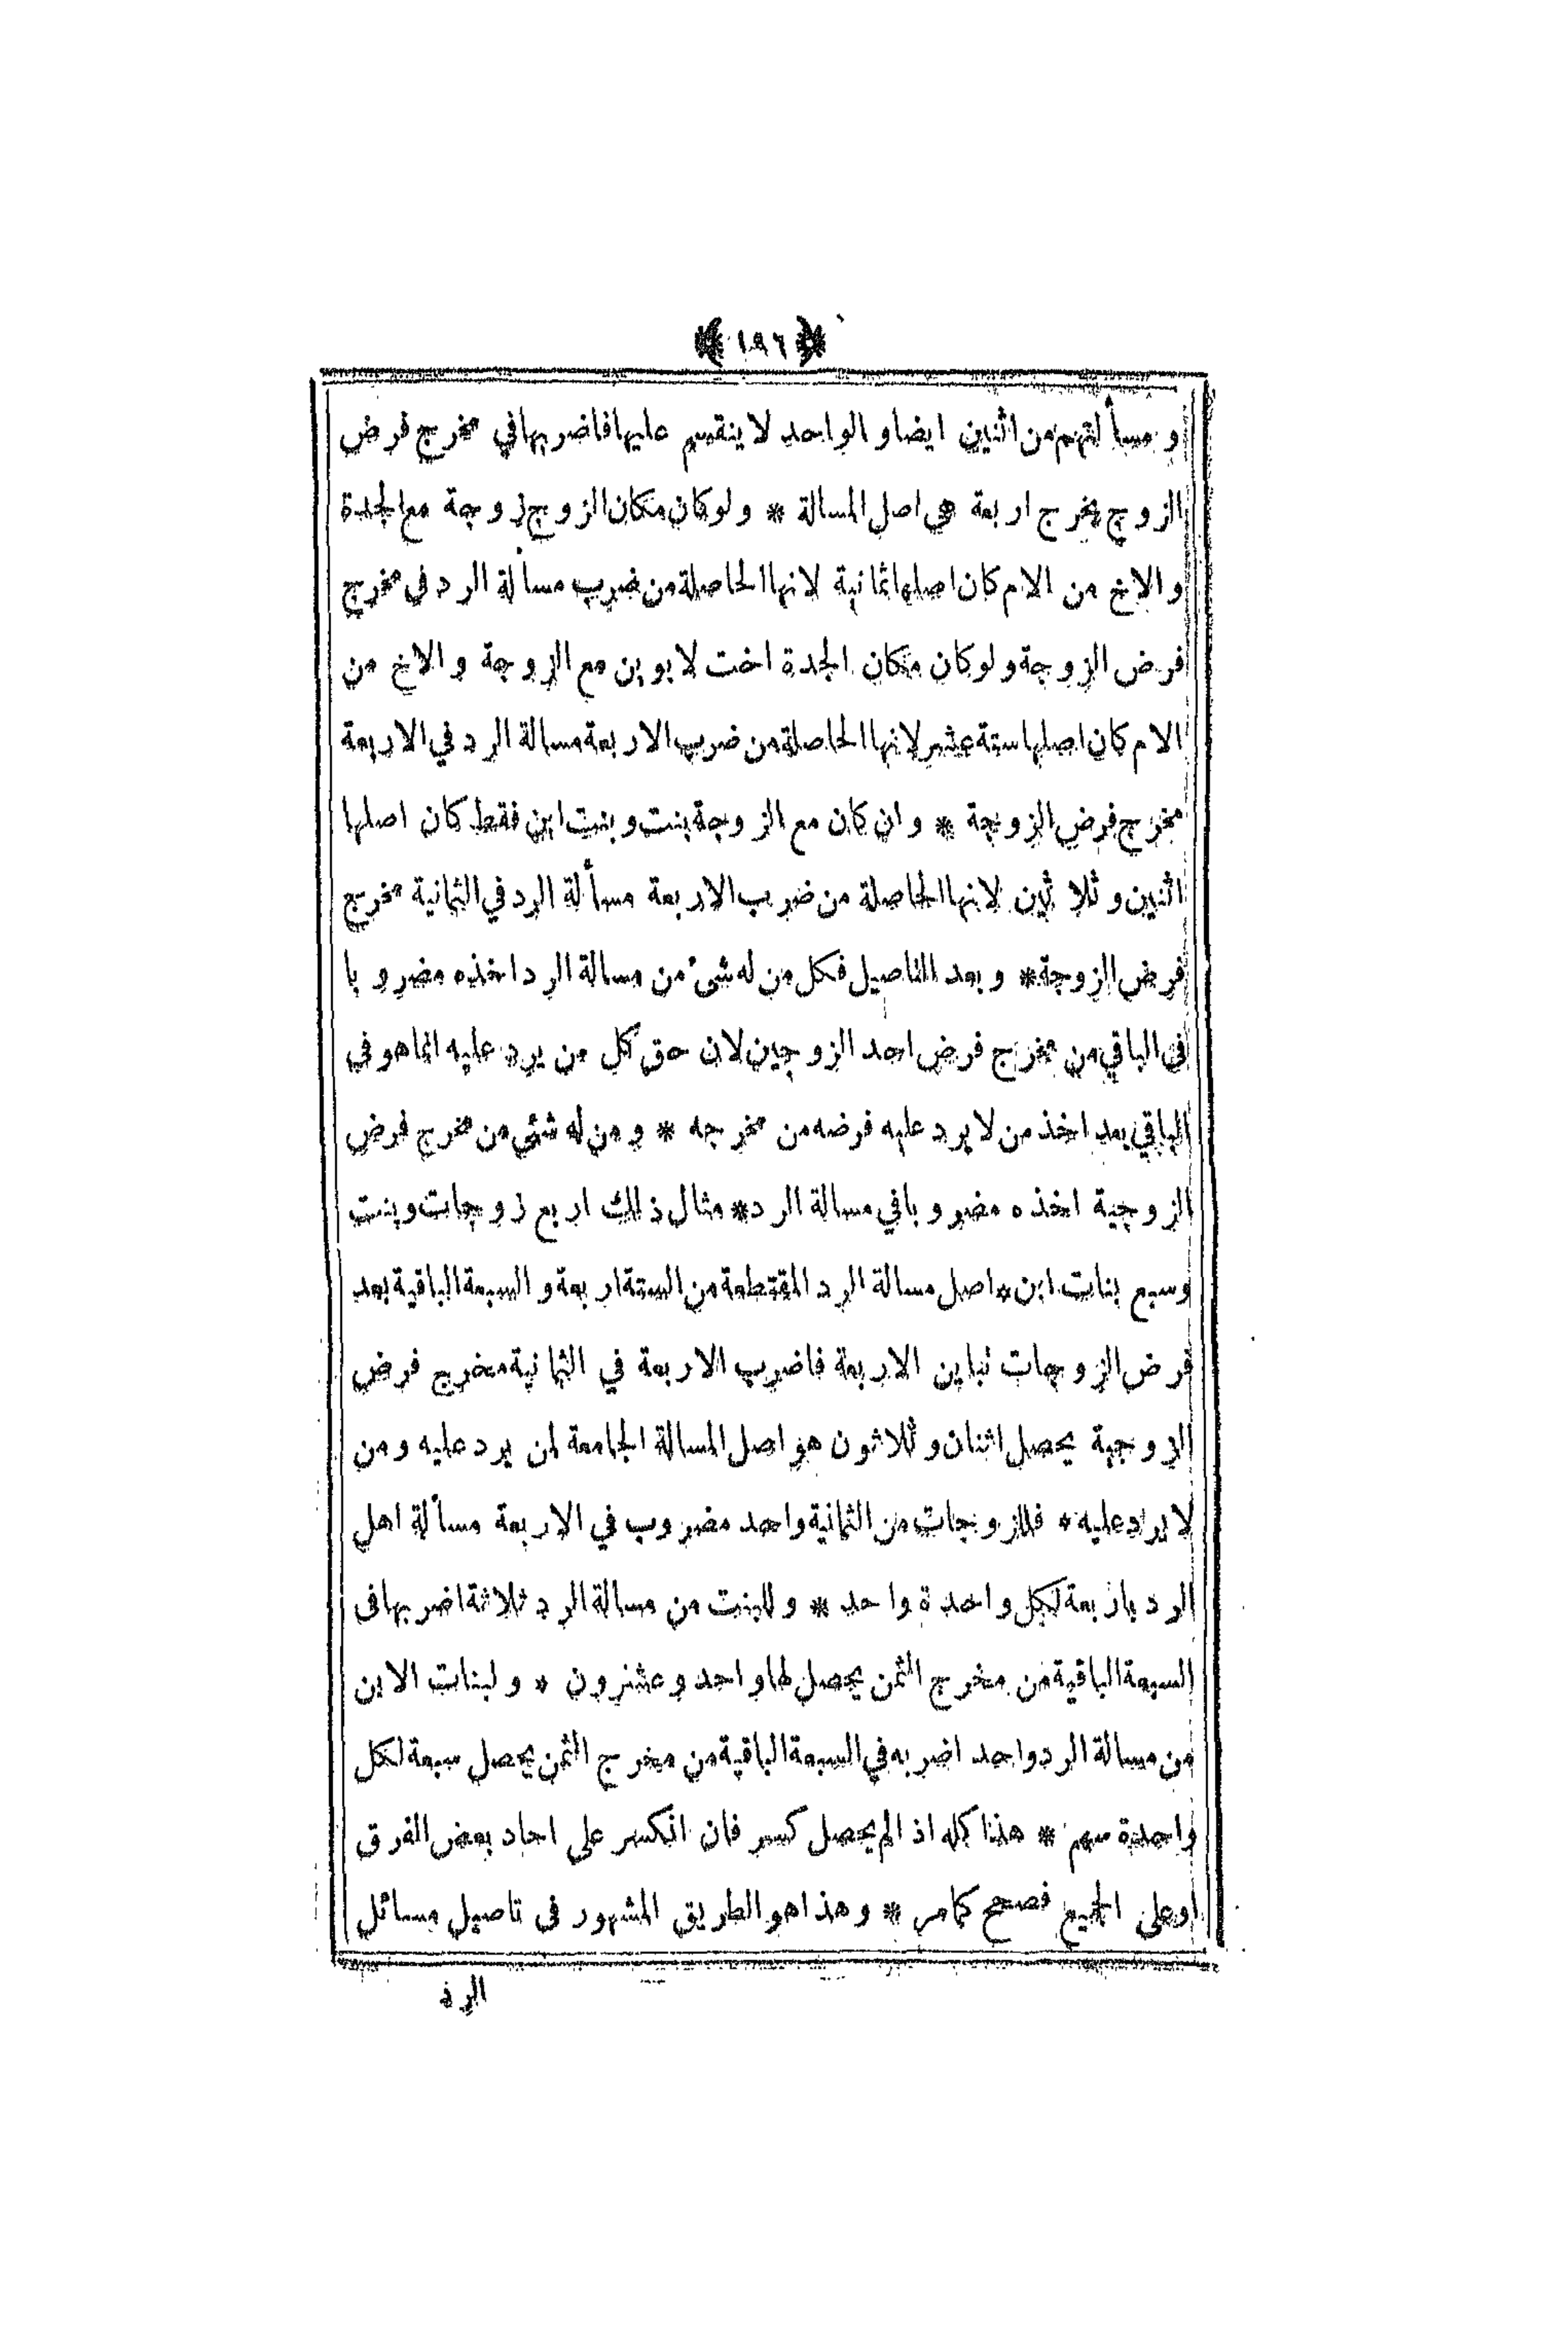 ﴿ ١٩٦ ﴾
و مسأ لتهم من اثنين ايضا و الواحد لا ينقسم عليها فاضربها في مخرج فرض
الزوج يخرج اربعة هي اصل المسالة * ولوكان مكان الزوج زوجة مع الجدة
و الاخ من الام كان اصلها ثمانية لانها الحاصلة من ضرب مسألة الرد في مخرج
فرض الزوجة و لوكان مكان الجدة اخت لابوين مع الزوجة و الاخ من
الام كان اصلها ستة عشر لانها الحاصلة من ضرب الاربعة مسالة الرد في الاربعة
مخرج فرض الزوجة * وان كان مع الزوجة بنت و بنت ابن فقط كان اصلها
اثنين و ثلاثين لانها الحاصلة من ضرب الاربعة مسألة الرد في الثمانية مخرج
فرض الزوجة * وبعد التاصيل فكل من له شئ من مسالة الرد اخذه مضرو با
فى الباقي من مخرج فرض احد الزوجين لان حق كل من يرد عليه انما هو في
الباقي بعد اخذ من لا يرد عليه فرضه من مخرجه * و من له شئي من مخرج فرض
الزوجية اخذه مضرو بافي مسالة الرد * مثال ذلك اربع زوجات و بنت
وسبع بنات ابن * اصل مسالة الرد المقتطعة من الستة اربعة و السبعة الباقية بعد
فرض الزوجات تباين الاربعة فاضرب الاربعة في الثمانية مخرج فرض
الزوجية يحصل اثنان و ثلاثون هو اصل المسالة الجامعة لمن يرد عليه و من
لا يرد عليه * فللزوجات من الثمانية واحد مضروب في الاربعة مسألة اهل
الرد باربعة لكل واحدة واحد * و للبنت من مسالة الرد ثلاثة اضربها فى
السبعة الباقية من مخرج الثمن يحصل لها واحد و عشرون * و لبنات الابن
من مسالة الرد واحد اضربه في السبعة الباقية من مخرج الثمن يحصل سبعة لكل
واحدة سهم * هذا كله اذ الم يحصل كسر فان انكسر على احاد بعض الفرق
اوعلى الجميع فصحح كمامر * وهذا هو الطريق المشهور فى تاصيل مسائل
الرد